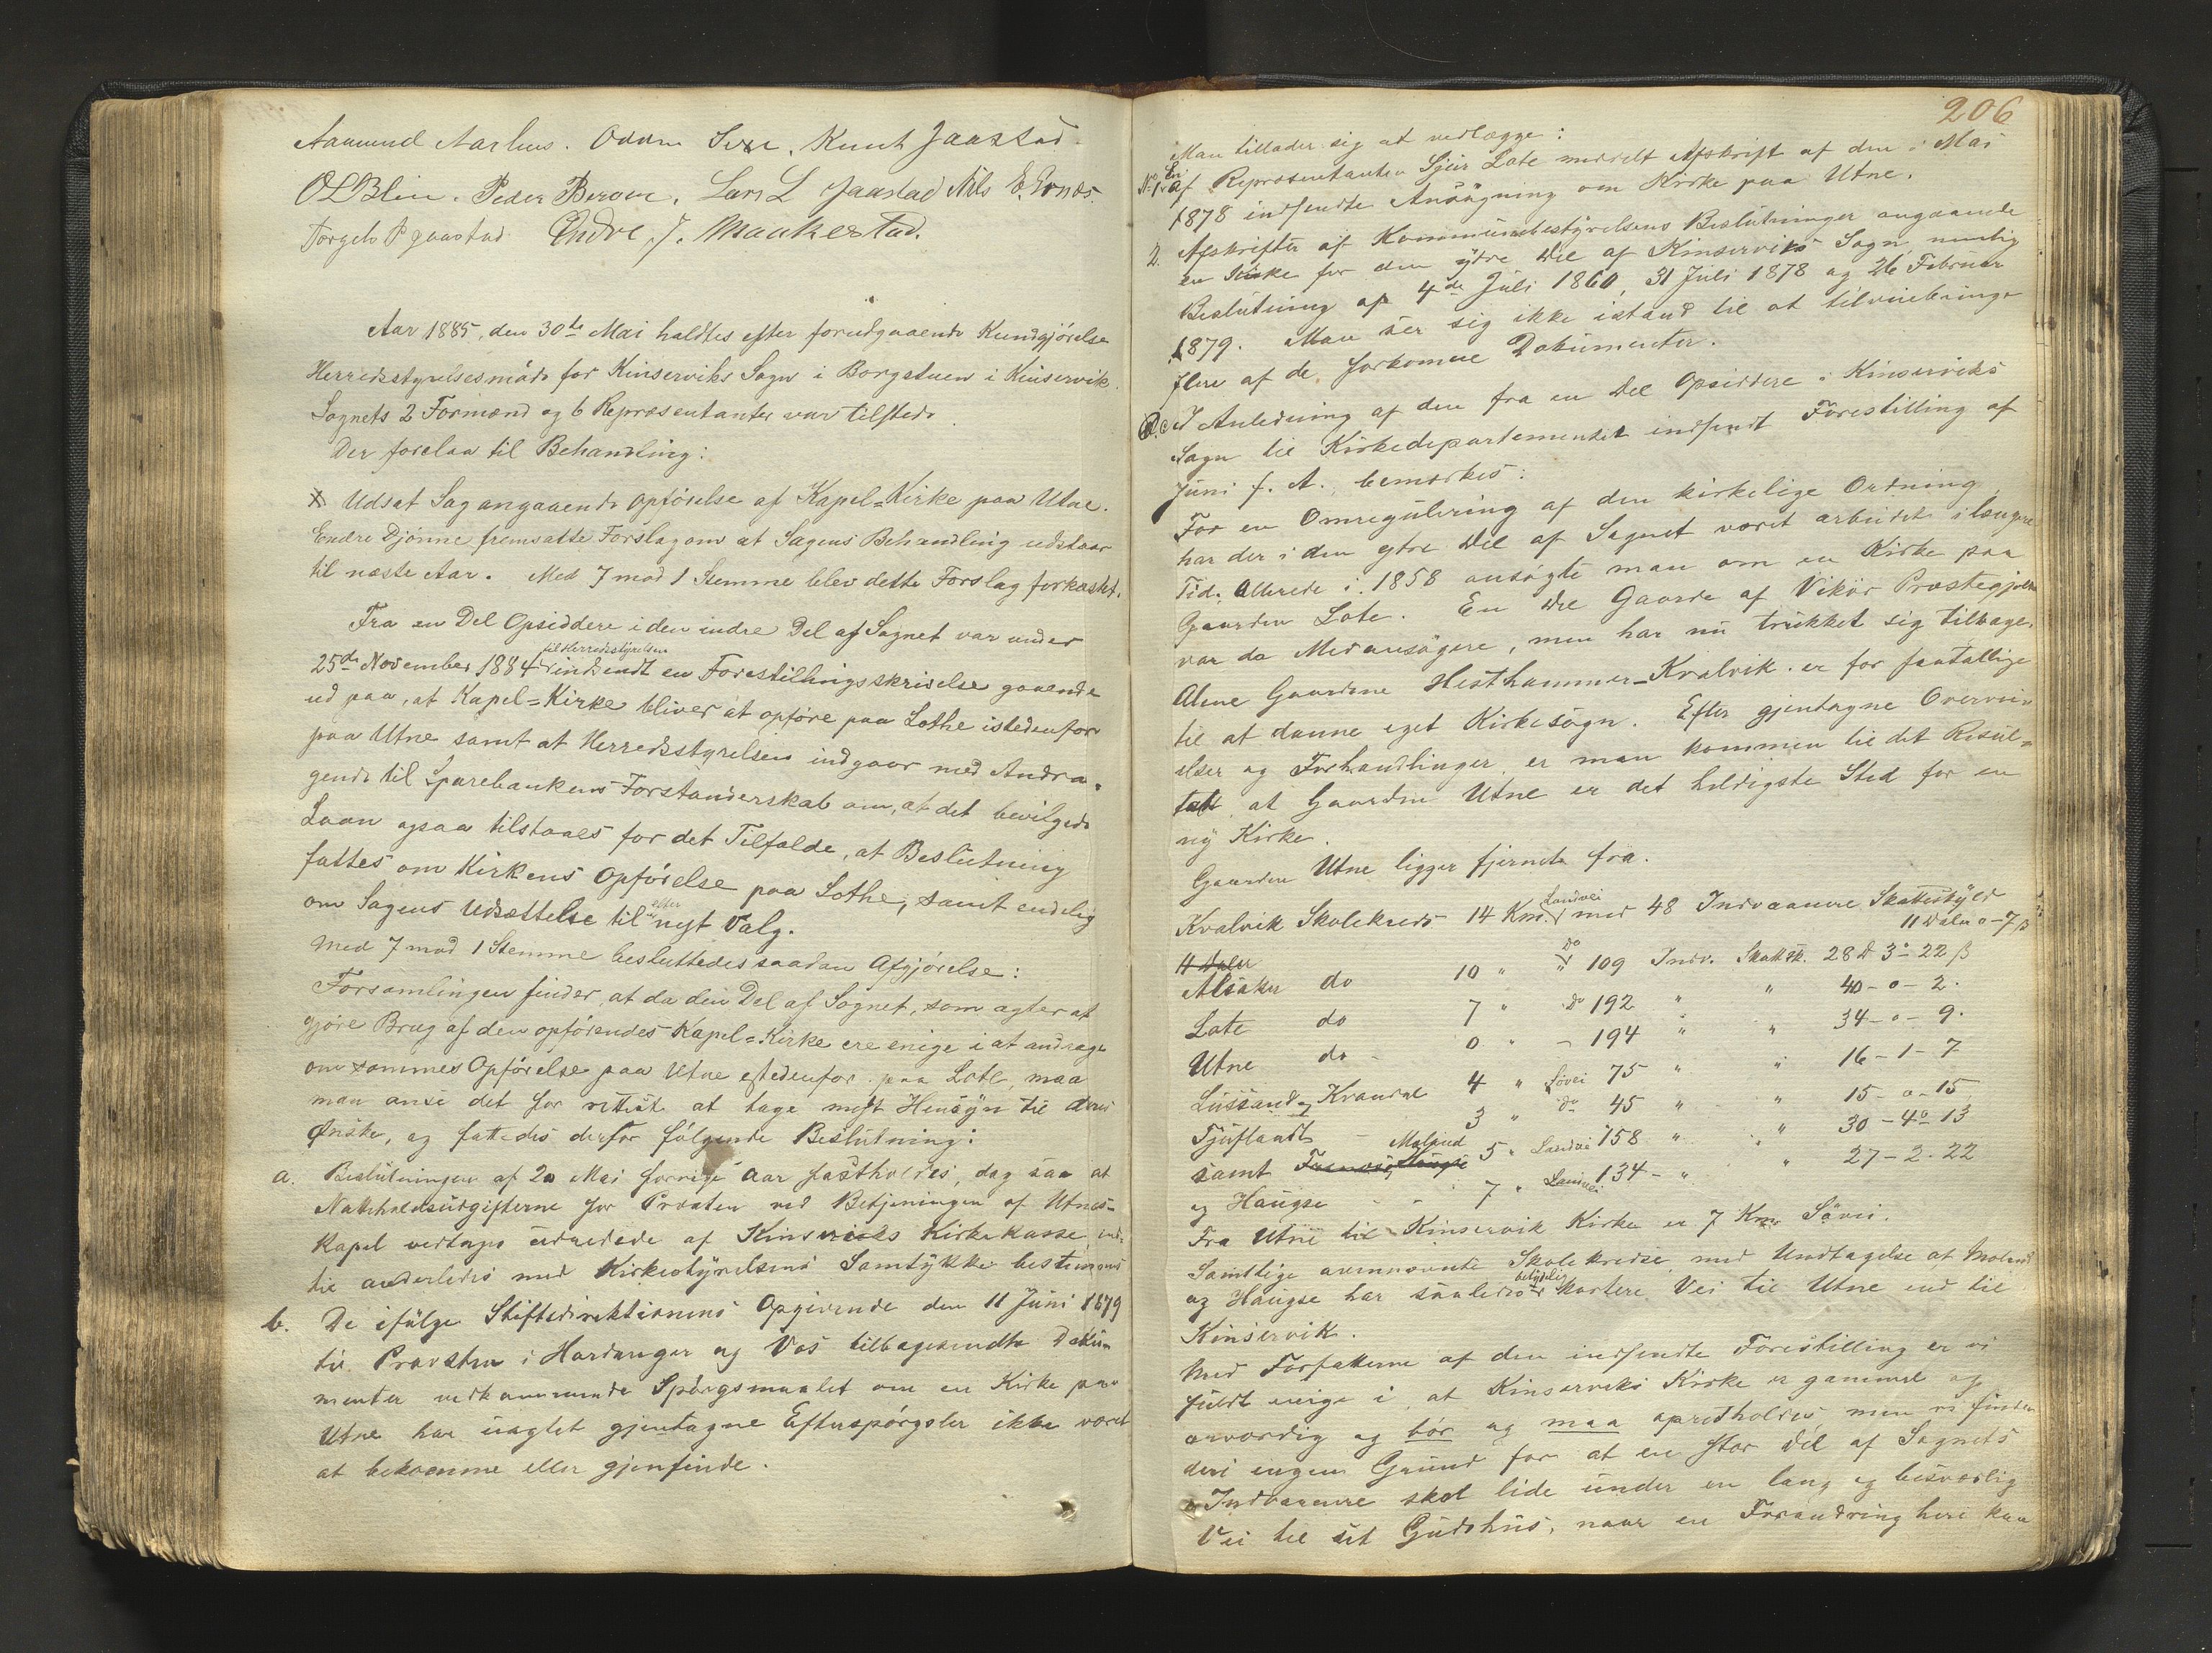 Aamund Aarhus. Oddm Sexe. Knut Jaastad
O L Blie. Peder Berven. Lars L Jaastad Nils E. Ernes.
Torgels P Jaastad Endre J. Maakestad.
Aar 1885, den 30te Mai holdtes efter forudgaaende Kundgjörelse
Herredsstyrelsesmöde for Kinserviks Sogn i Borgstuen i Kinservik.
Sognets 2 Formænd og 6 Repræsentanter var tilstede.
Der forelaa til Behandling:
X Udsat Sag angaaende Opförelse af Kapel=Kirke paa Utne.
Endre Djönne fremsatte Forslag om at Sagens Behandling udstaar
til næste Aar. Med 7 mod 1 Stemme blev dette Forslag forkastet.
Fra en Del Opsiddere i den indre Del af Sognet var under
25de November 1884 til Herredsstyrelsen indsendt en Forestillingsskrivelse gaaende
ud paa, at Kapel=Kirke bliver at opföre paa Lothe istedenfor
paa Utne samt at Herredsstyrelsen indgaar med Andra-
gende til Sparebankens Forstanderskab om, at det bevilgede
Laan ogsaa tilstaaes for det Tilfælde, at Beslutning
fattes om Kirkens Opförelse paa Lothe, samt endelig
om Sagens Udsættelse til efter nyt Valg.
Med 7 mod 1 Stemme besluttedes saadan Afgjörelse:
Forsamlingen finder, at da den Del af Sognet, som agter at
gjöre Brug af den opförendes Kapel=Kirke ere enige i at andrage
om sammes Opförelse paa Utne istedenfor paa Lote, maa
man anse det for rettest at tage mest Hensyn til deres
Ønske, og fattedes derfor fölgende Beslutning:
a. Beslutningen af 20 Mai forrige Aar fastholdes, dog saa at
Natteholdsudgifterne for Præsten ved Betjeningen af Utnes-
Kapel vedtages udredede af Kinserviks Kirkekasse, ind-
til anderledes med Kirkestyrelsens Samtykke bestemmes
b. De ifölge Stiftsdirektionens Opgivende den 11 Juni 1879
til Provsten i Hardanger og Vos tilbagesendte Doku-
menter vedkommende Spörgsmaalet om en Kirke paa
Utne har uagtet gjentagne Efterspörgsler ikke været
at bekomme eller gjenfinde.
206
Man tillader sig at vedlægge:
No 1. En af Repræsentanten Sjur Lote meddelt Afskrift af den i Mai
1878 indsendte Ansögning om Kirke paa Utne.
2. Afskrifter af Kommunebestyrelsens Beslutninger angaaende
en Kirke for den ydre Del af Kinserviks Sogn, nemlig
Beslutning af 4de Juli 1860, 31 Juli 1878 og 26 Februar
1879. Man ser sig ikke istand til at tilveiebringe
flere af de forkomne Dokumenter.
c. I Anledning af den fra en Del Opsiddere i Kinserviks
Sogn til Kirkedepartementet indsendt Forestilling af
Juni f. A., bemærkes:
For en Omregulering af den kirkelige Ordning
har der i den ytre Del af Sognet været arbeidet i længere
Tid. Allerede i 1858 ansögte man om en Kirke paa
Gaarden Lote. En Del Gaarde af Vikör Præstegjæld
var da Medansögere, men har nu trukket sig tilbage.
Alene Gaardene Hesthammer-Kvalvik er for faatallige
til at danne eget Kirkesogn. Efter gjentagne Overvei-
elser og Forhandlinger er man kommen til det Resul-
tat at Gaarden Utne er det heldigste Sted for en
ny Kirke.
Gaarden Utne ligger fjernet fra.
Kvalvik Skolekreds 14 Km. Landvei med 48 Indvaanere Skatteskyld
11 Daler 0-7 ß
11 Daler
Alsaker do 10 " do " 109 Indv. Skattsk. 28 D 3-22 ß
Lote do 7 " do 192 " " 40-0-2.
Utne do - 0 " - 194 " " 34-0-9.
Lussand og Kvandal 4 " Sövei 75 " " 16-1-7
Tjuflaadt - 3 " do 45 " " 15-0-15
samt Molund 5 " Landvei 158 " " 30-4-13
og Haugse - - 7 " Landvei 134 - " " 27-2-22
Fra Utne til Kinservik Kirke er 7 Km Sövei.
Samtlige ovennævnte Skolekredse, med Undtagelse af Moland
og Haugse har saaledes betydelig kortere Vei til Utne end til
Kinservik.
Med Forfatterne af den indsendte Forestilling er vi
fuldt enige i, at Kinserviks Kirke er gammel og
ærværdig og bör og maa opretholdes men vi finder
deri ingen Grund for at en stor Del af Sognets
Indvaanere skal lide under en lang og besværlig
Vei til sit Gudshus, naar en Forandring heri kan